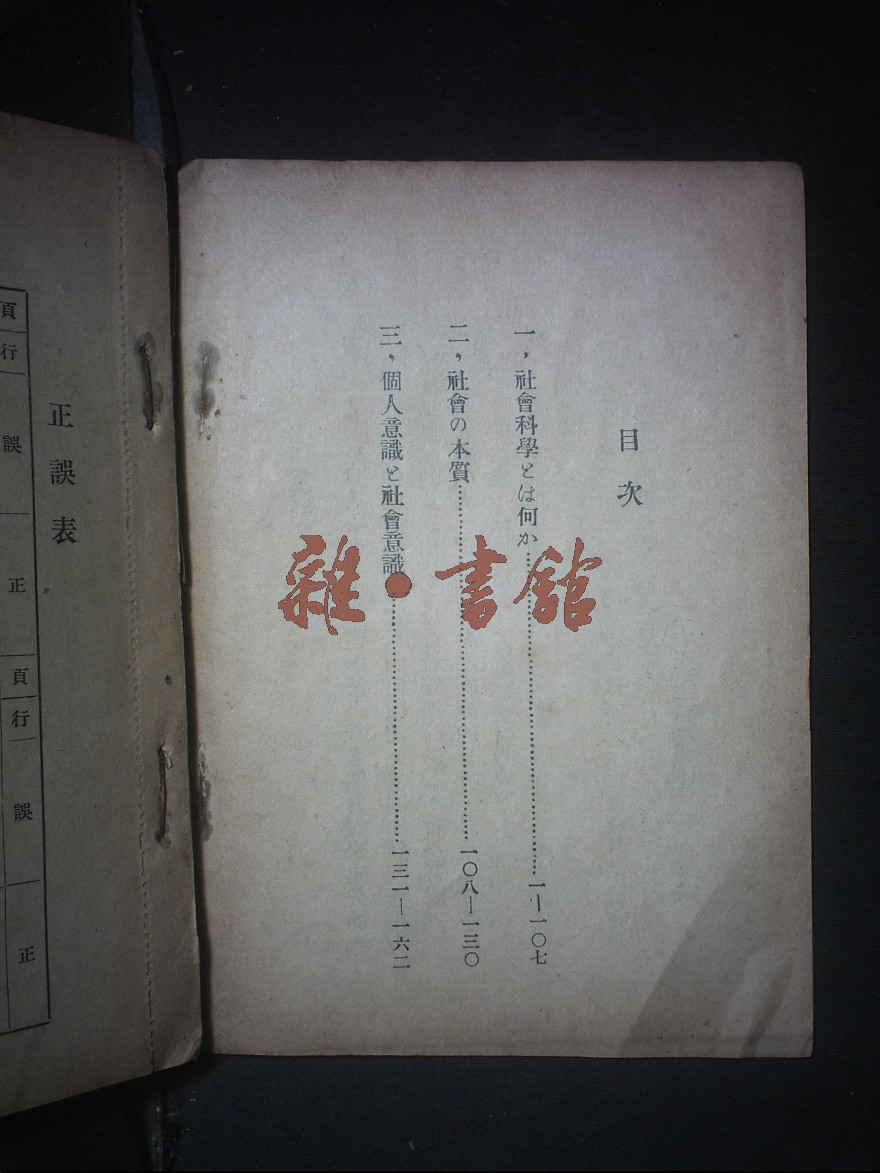 目次
一，社會科學とは何か……………………一—一〇七
二，社會の本質……………………一〇八—一三〇
三，個人意識と社會意識……………………一三一—一六二
正誤表
頁 行 誤 正
頁 行 誤 正
雜·書館